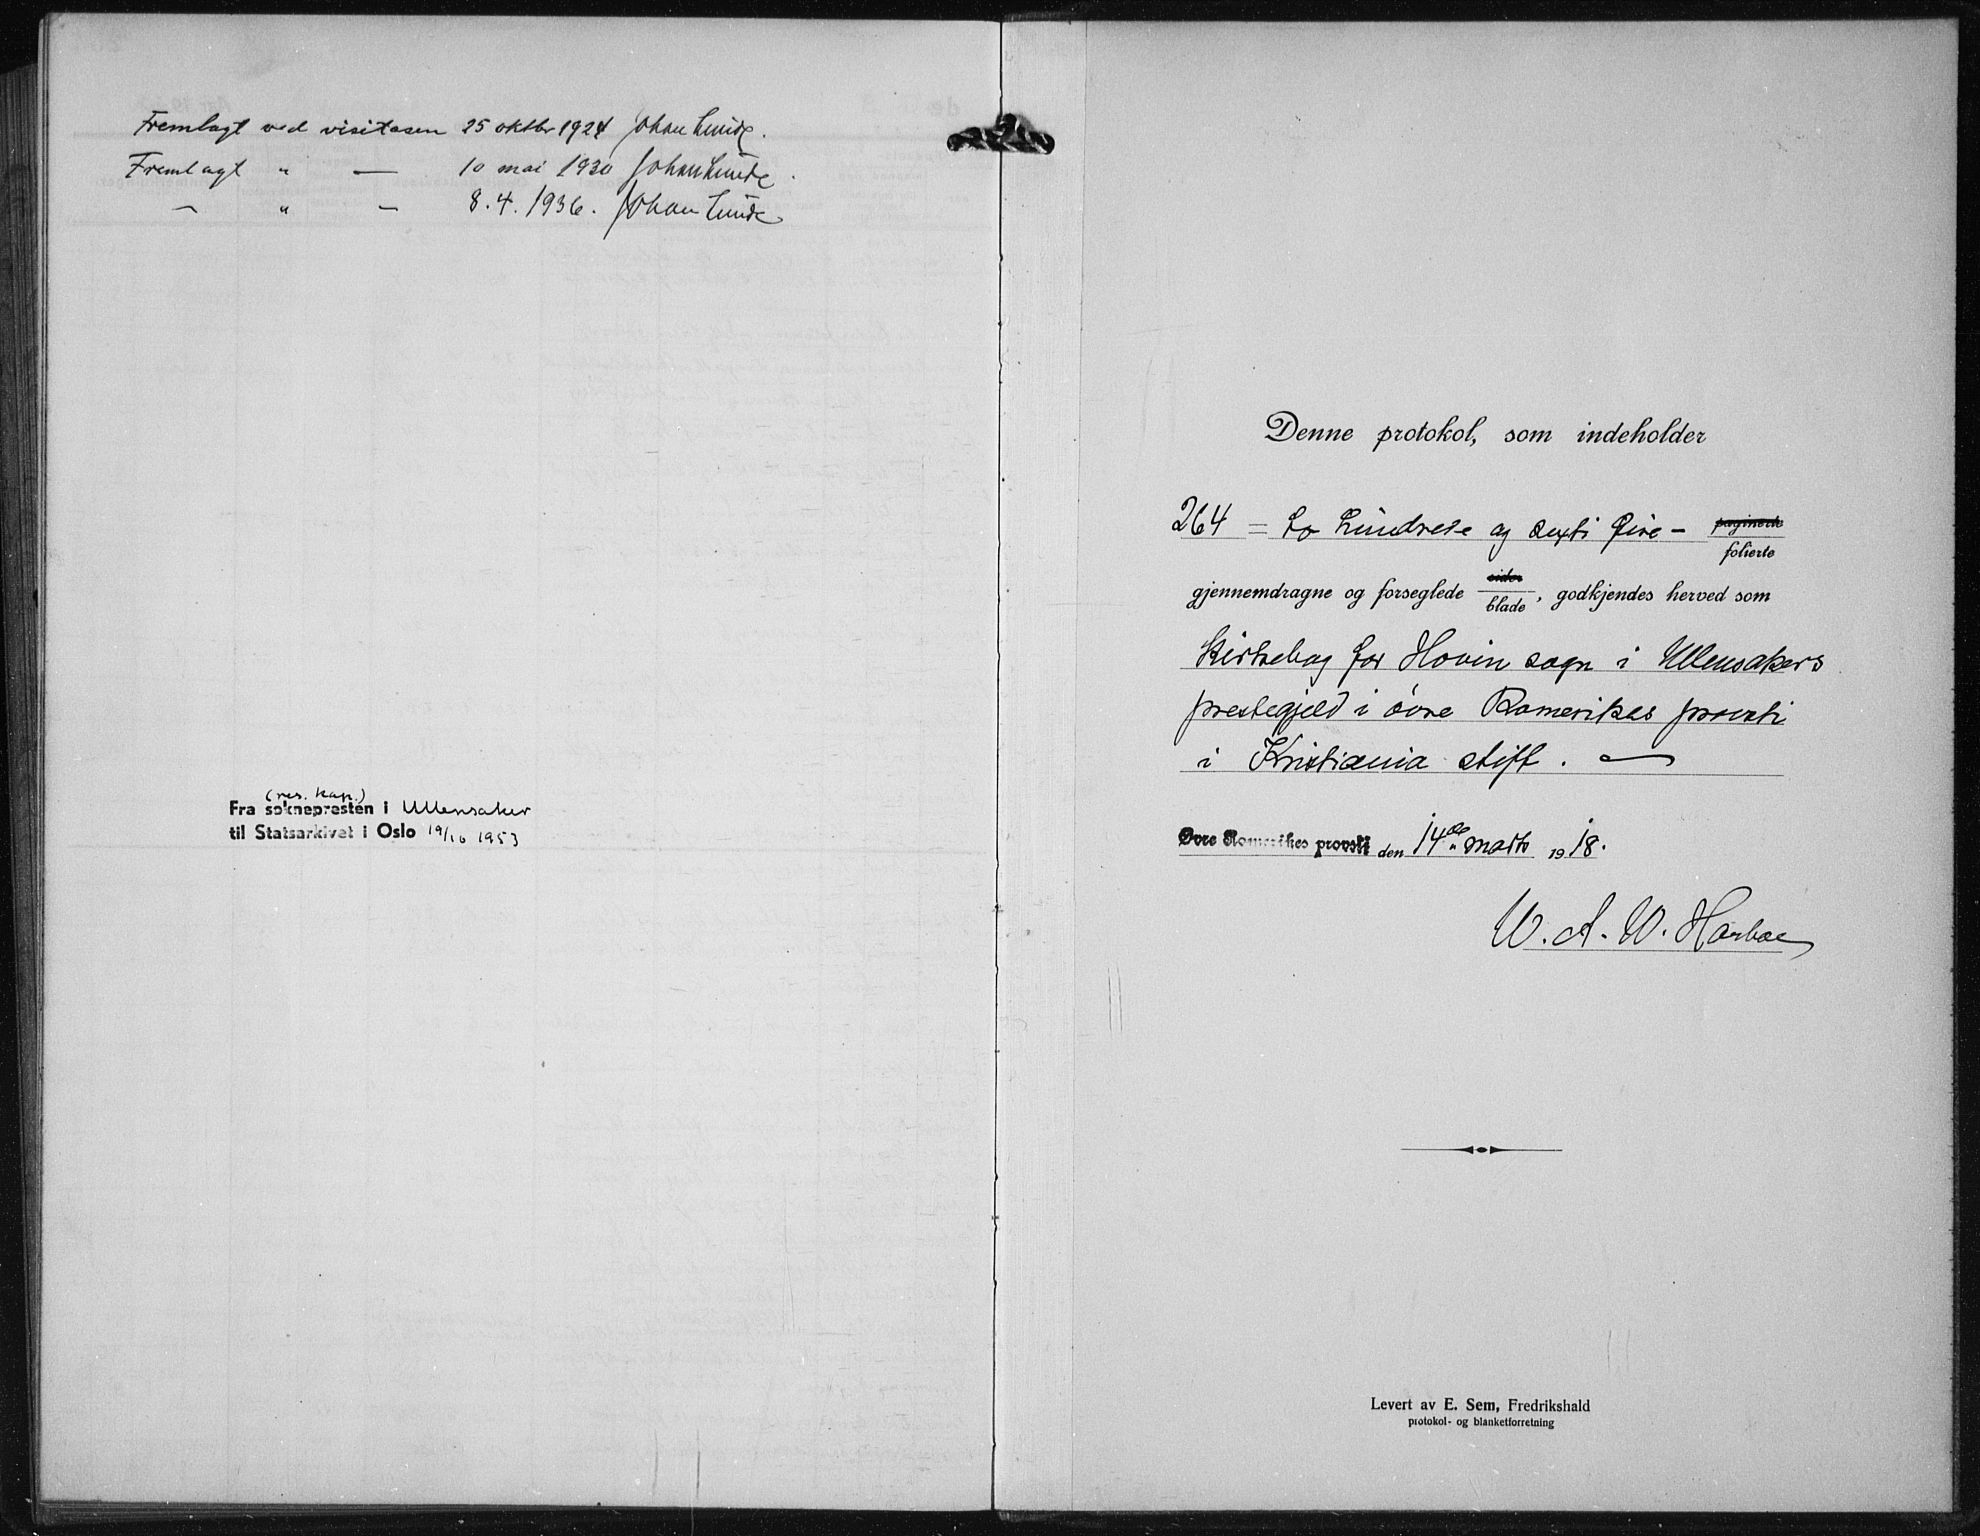 Fremlagt ved visitasen 25 oktbr 1924 Johan Lunde.
Fremlagt " — 10 mai 1930 Johan Lunde.
— " — 8.4.1936. Johan Lunde
(res. kap.)
Fra soknepresten i Ullensaker
til Statsarkivet i Oslo 19/10 1953
Denne protokol, som indeholder
264 = to hundrede og sexti fire – paginerte
folierte
sider
gjennemdragne og forseglede blade, godkjendes herved som
Kirkebog for Hovin sogn i Ullensakers
prestegjeld i øvre Romerikes provsti
i Kristiania stift. —
Øvre Romerikes provsti den 14de marts 1918.
W. A. W. Harboe
Levert av E. Sem, Fredrikshald
protokol- og blanketforretning